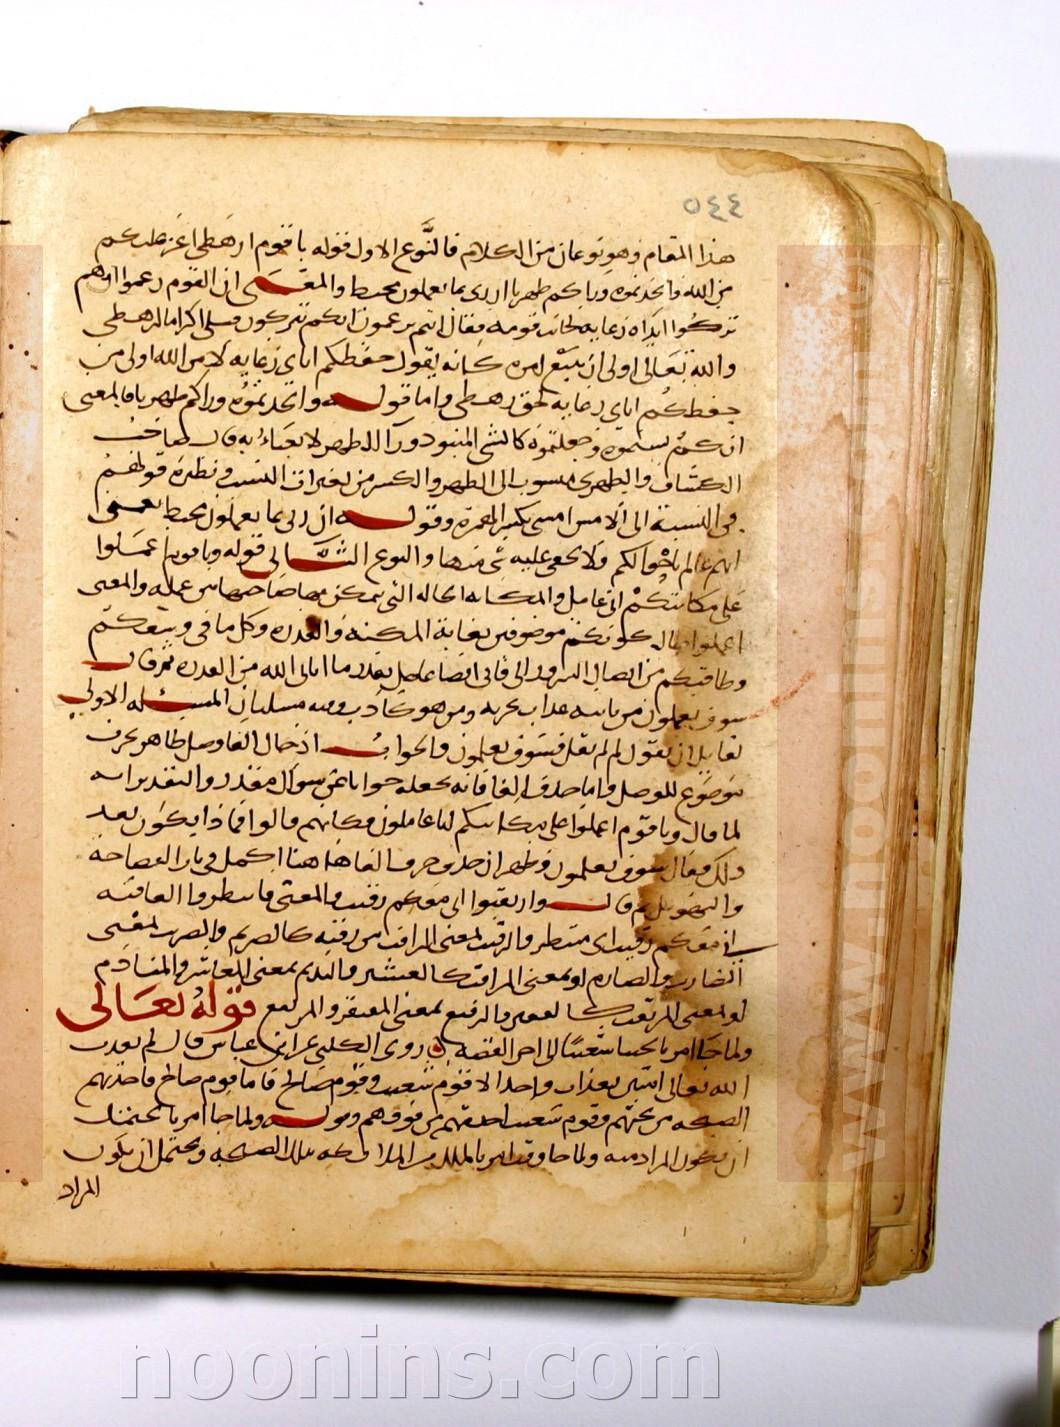 ٥٤٤
هذا المقام وهو نوعان من الكلام فالنوع الاول فقوله يا قوم ارهطى اعز عليكم
من الله واتخذتموه وراكم ظهريا ان ربى بما تعملون محيط والمعنى ان القوم زعموا انهم
تركوا ايذاه رعايه لجانب قومه فقال انتم تزعمون انكم تتركون قتلى اكراما لرهطى
والله تعالى اولى ان يتبع امره كانه يقول حفظكم اياى رعايه لامر الله اولى من
حفظكم اياى رعايه لحق رهطى واما قوله واتخذتموه وراكم ظهريا فالمعنى
انكم نسيتموه وجعلتموه كالشى المنبوذ ورآ الظهر لا يعباء به قال صاحب
الكشاف والظهرى منسوب الى الظهر والكسر من تغيرات النسب ونظيره قولهم
فى النسبة الى الامس امسى بكسر الهمزة وقوله ان ربى بما تعملون محيط يعنى
انه عالم باحوالكم ولا يخفى عليه شى منها والنوع الثانى قوله ويا قوم اعملوا
على مكانتكم انى عامل والمكانه الحاله التى يتمكن بها صاحبها من عمله والمعنى
اعملوا حال كونكم موصوفين بغاية المكنة والقدره وكل ما فى وسعكم
وطاقتكم من ايصال الشرور الى فانى ايضا عامل بقدر ما اتانى الله من القدره ثم قال
سوف تعملون من ياتيه عذاب يخزيه ومن هو كاذب وفيه مسلتان المسئله الاولى
لقايل ان يقول لم لم يقل فسوف تعلمون والجواب ادخال الفا وصل ظاهر بحرف
موضوع للوصل واما حذف الفا فانه يجعله جوابا عن سوال مقدر والتقدير انه
لما قال ويا قوم اعملوا على مكانتكم انى عامل فكانهم قالوا فماذا يكون بعد
ذلك فقال سوف تعلمون فظهر ان حذف حرف الفا هاهنا اكمل فى باب الفصاحة
والتهويل ثم قال وارتقبوا انى معكم رقيب والمعنى فانتظروا العاقبه
انى معكم رقيب اى منتظر والرقيب بمعنى الراقب من رقبه كالصريم والضريب بمعنى
الضارب والصارم او بمعنى المراقب كالعشير والنديم بمعنى المعاشر والمنادم
او بمعنى المرتقب كالفقير والرفيع بمعنى المفتقر والمرتفع قوله تعالى
ولما جا امرنا نجينا شعيبا الى اخر القصه روى الكلبى عن ابن عباس قال لم يعذب
الله تعالى امتين بعذاب واحد الا قوم شعيب وقوم صالح فاما قوم صالح فاخذتهم
الصيحه من تحتهم وقوم شعيب اخذتهم من فوقهم وقوله ولما جا امرنا يحتمل
ان يكون المراد منه ولما جا وقت امرنا لملك من الملائكه بتلك الصيحه ويحتمل ان يكون
المراد
www.noonins.com
noonins.com